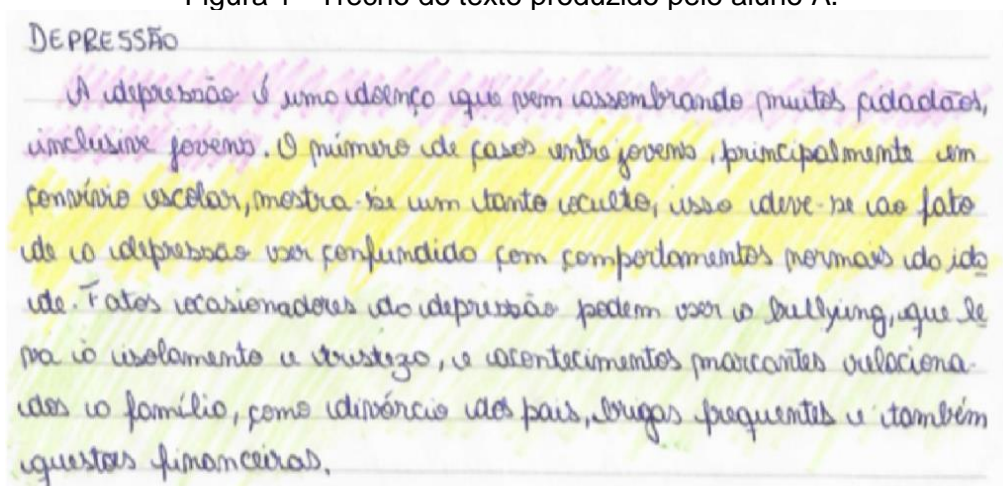 Figura 1 – Trecho do texto produzido pelo aluno A.
DEPRESSÃO
A depressão é uma doença que vem assombrando muitos cidadãos,
inclusive jovens. O número de casos entre jovens, principalmente em
convívio escolar, mostra-se um tanto oculto, isso deve-se ao fato
de a depressão ser confundida com comportamentos normais da ida
de. Fatos ocasionadores da depressão podem ser o bullying, que le
va à isolamento e tristeza, e acontecimentos marcantes relaciona-
dos a família, como divórcio dos pais, brigas frequentes e também
questões financeiras.